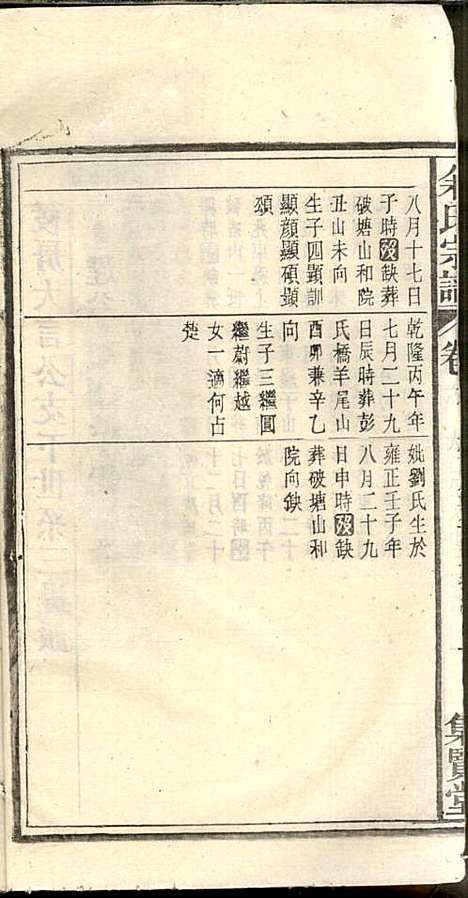 余氏宗譜
卷
集賢堂
八月十七日
子時歿缺葬
破塘山和院
丑山未向
生子四顯訓
顯顔顯碩顯
頌
乾隆丙午年
七月二十九
日辰時葬彭
氏橋羊尾山
酉卯兼辛乙
向
生子三繼圓
繼蔚繼越
女一適何占
楚
妣劉氏生於
雍正壬子年
八月二十九
日申時歿缺
葬破塘山和
院向缺